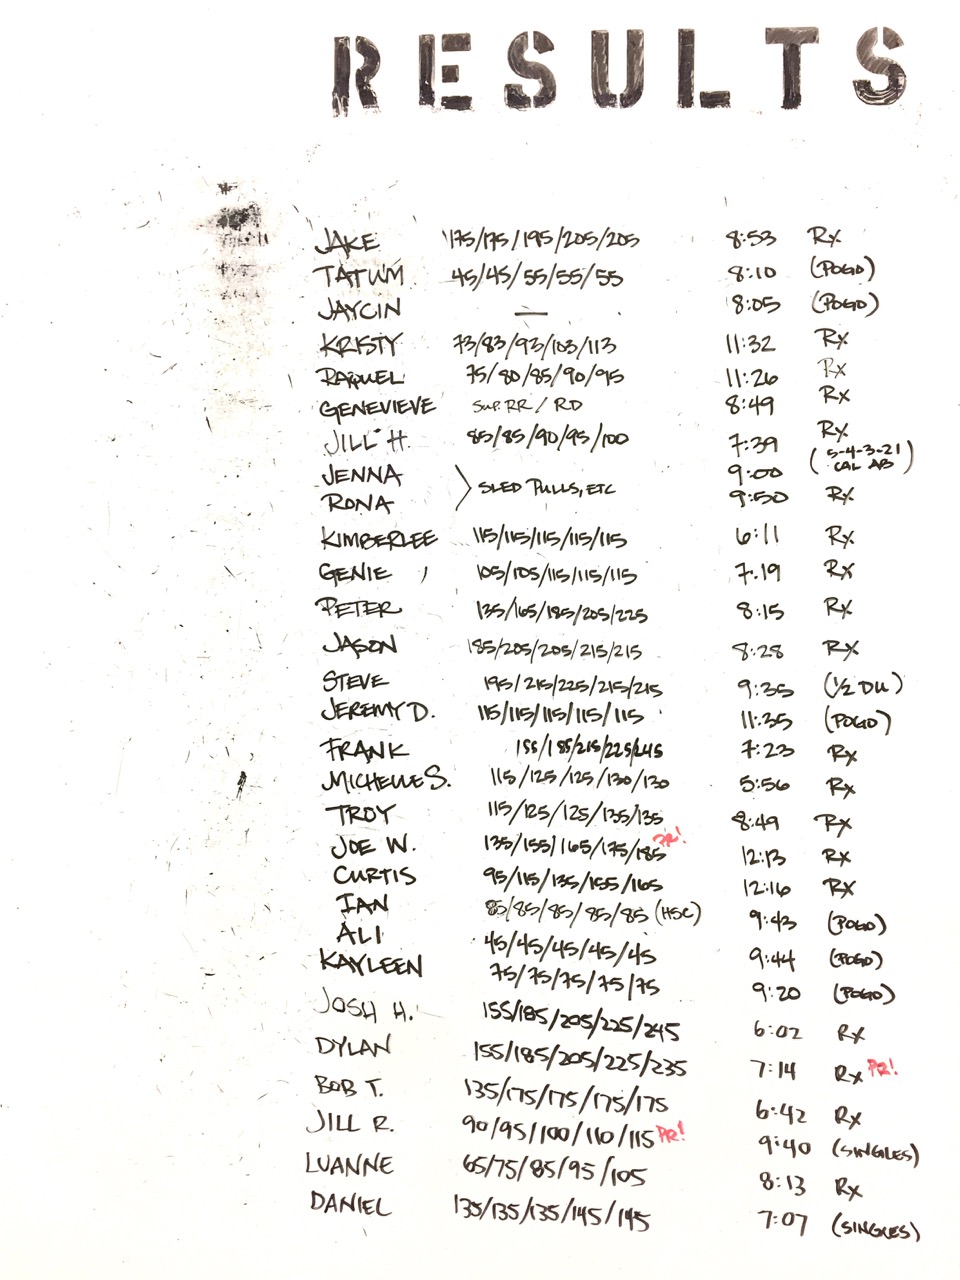 RESULTS
JAKE 175/175/195/205/205 8:53 Rx
TATUM 45/45/55/55/55 8:10 (POGO)
JAYCIN — 8:05 (POGO)
KRISTY 73/83/93/103/113 11:32 Rx
RAQUEL 75/80/85/90/95 11:26 Rx
GENEVIEVE SUP. RR / RD 8:49 Rx
JILL H. 85/85/90/95/100 7:39 Rx
JENNA 9:00 (5-4-3-21 CAL AB)
> SLED PULLS, ETC
RONA 9:50 Rx
KIMBERLEE 115/115/115/115/115 6:11 Rx
GENIE 105/105/115/115/115 7:19 Rx
PETER 135/165/185/205/225 8:15 Rx
JASON 185/205/205/215/215 8:28 Rx
STEVE 195/215/225/215/215 9:35 (1/2 DU)
JEREMY D. 115/115/115/115/115 11:35 (POGO)
FRANK 155/185/215/225/245 7:23 Rx
MICHELLE S. 115/125/125/130/130 5:56 Rx
TROY 115/125/125/135/135 8:49 Rx
JOE W. 135/155/165/175/185 PR! 12:13 Rx
CURTIS 95/115/135/155/165 12:16 Rx
IAN 85/85/85/85/85 (HSC) 9:43 (POGO)
ALI 45/45/45/45/45 9:44 (POGO)
KAYLEEN 75/75/75/75/75 9:20 (POGO)
JOSH H. 155/185/205/225/245 6:02 Rx
DYLAN 155/185/205/225/235 7:14 Rx PR!
BOB T. 135/175/175/175/175 6:42 Rx
JILL R. 90/95/100/110/115 PR! 9:40 (SINGLES)
LUANNE 65/75/85/95/105 8:13 Rx
DANIEL 135/135/135/145/145 7:07 (SINGLES)